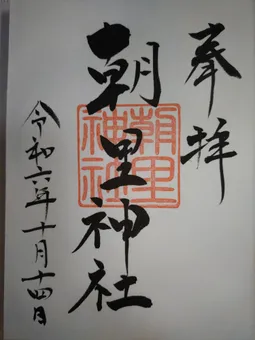 奉拝
朝里神社
朝里神社
令和六年十月十四日